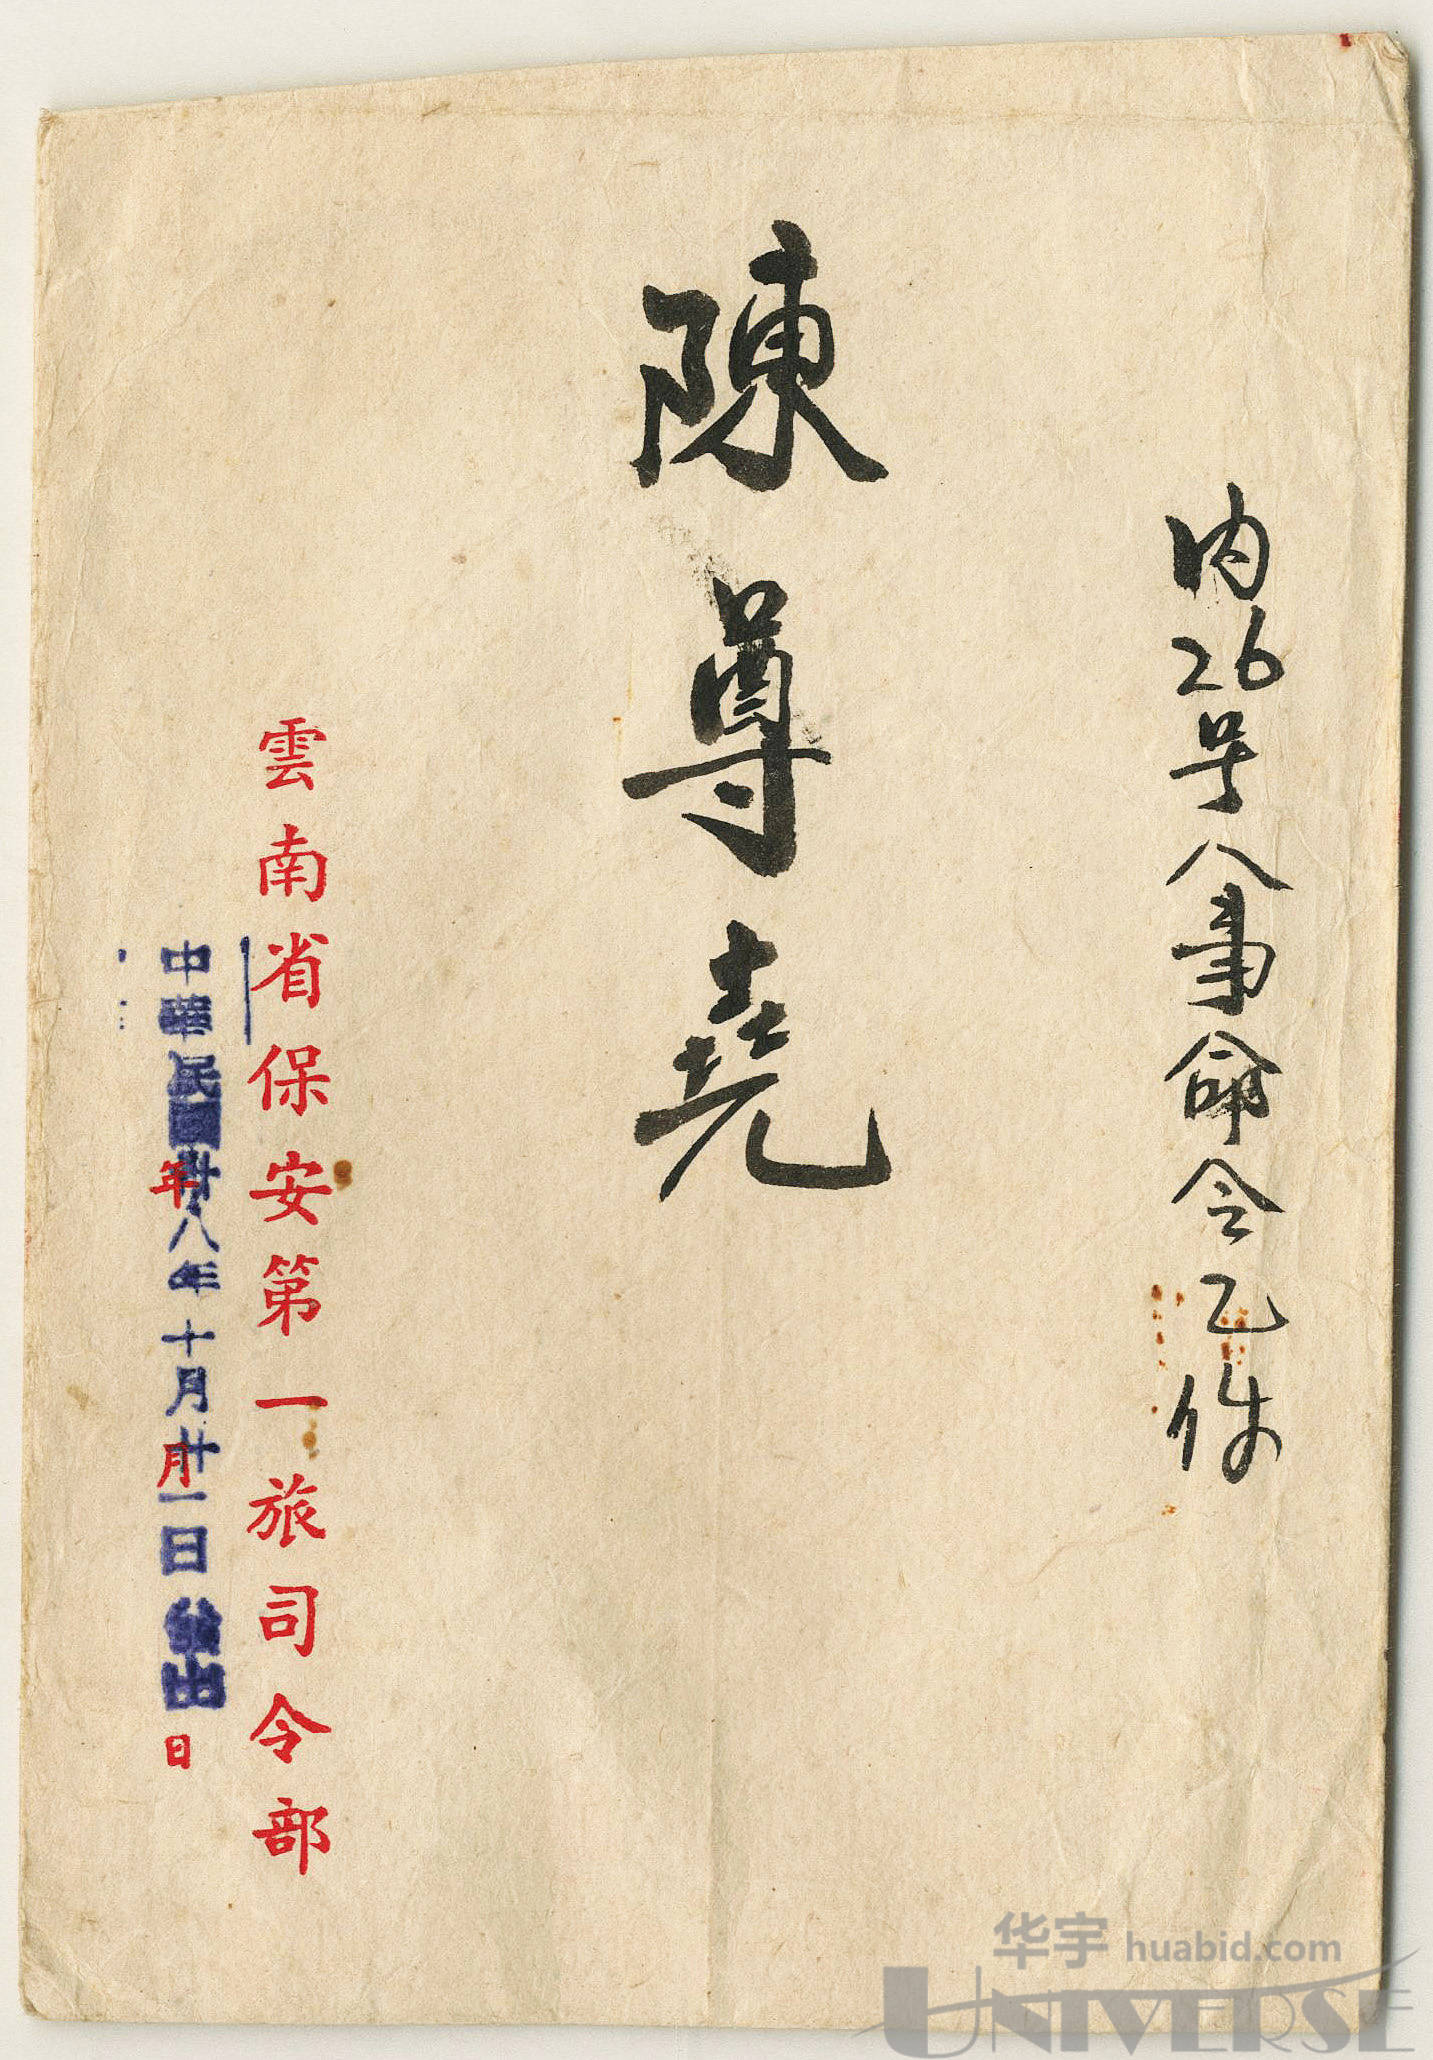 内26号人事命令乙件
陳尊堯
雲南省保安第一旅司令部
中華民國卅八年十月廿一日發出
年月日
华宇 huabid.com
UNIVERSE